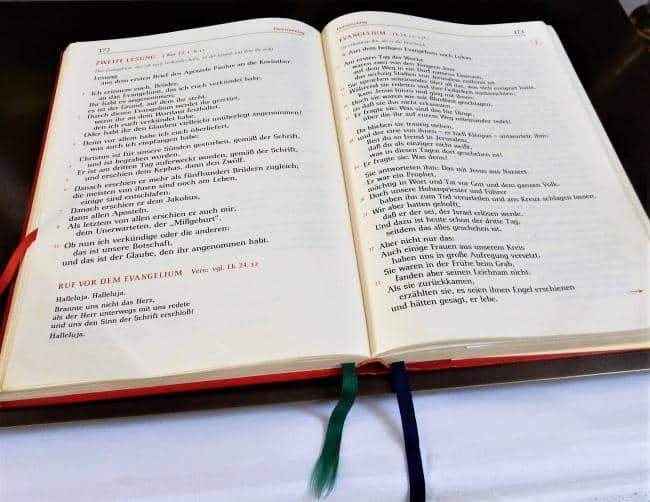 172
Ostermontag
ZWEITE LESUNG 1 Kor 15, 1-8.11
Das Evangelium, das ich euch verkündet habe, ist der Grund, auf dem ihr steht
Lesung
aus dem ersten Brief des Apostels Paulus an die Korinther.
1 Ich erinnere euch, Brüder,
an das Evangelium, das ich euch verkündet habe.
Ihr habt es angenommen;
es ist der Grund, auf dem ihr steht.
2 Durch dieses Evangelium werdet ihr gerettet,
wenn ihr an dem Wortlaut festhaltet,
den ich euch verkündet habe.
Oder habt ihr den Glauben vielleicht unüberlegt angenommen?
3 Denn vor allem habe ich euch überliefert,
was auch ich empfangen habe:
Christus ist für unsere Sünden gestorben, gemäß der Schrift,
4 und ist begraben worden.
Er ist am dritten Tag auferweckt worden, gemäß der Schrift,
5 und erschien dem Kephas, dann den Zwölf.
6 Danach erschien er mehr als fünfhundert Brüdern zugleich;
die meisten von ihnen sind noch am Leben,
einige sind entschlafen.
7 Danach erschien er dem Jakobus,
dann allen Aposteln.
8 Als letztem von allen erschien er auch mir,
dem Unerwarteten, der „Mißgeburt".
11 Ob nun ich verkündige oder die anderen:
das ist unsere Botschaft,
und das ist der Glaube, den ihr angenommen habt.
RUF VOR DEM EVANGELIUM Vers: vgl. Lk 24, 32
Halleluja. Halleluja.
Brannte uns nicht das Herz,
als der Herr unterwegs mit uns redete
und uns den Sinn der Schrift erschloß?
Halleluja.
Ostermontag
173
EVANGELIUM Lk 24, 13-35
Sie erkannten ihn, als er das Brot brach
Aus dem heiligen Evangelium nach Lukas.
13 Am ersten Tag der Woche
waren zwei von den Jüngern Jesu
auf dem Weg in ein Dorf namens Emmaus,
das sechzig Stadien von Jerusalem entfernt ist.
14 Sie sprachen miteinander über all das, was sich ereignet hatte.
15 Während sie redeten und ihre Gedanken austauschten,
kam Jesus hinzu und ging mit ihnen.
16 Doch sie waren wie mit Blindheit geschlagen,
so daß sie ihn nicht erkannten.
17 Er fragte sie: Was sind das für Dinge,
über die ihr auf eurem Weg miteinander redet?
Da blieben sie traurig stehen,
18 und der eine von ihnen – er hieß Kléopas – antwortete ihm:
Bist du so fremd in Jerusalem,
daß du als einziger nicht weißt,
was in diesen Tagen dort geschehen ist?
19 Er fragte sie: Was denn?
Sie antworteten ihm: Das mit Jesus aus Nazaret.
Er war ein Prophet,
mächtig in Wort und Tat vor Gott und dem ganzen Volk.
20 Doch unsere Hohenpriester und Führer
haben ihn zum Tod verurteilen und ans Kreuz schlagen lassen.
21 Wir aber hatten gehofft,
daß er der sei, der Israel erlösen werde.
Und dazu ist heute schon der dritte Tag,
seitdem das alles geschehen ist.
22 Aber nicht nur das:
Auch einige Frauen aus unserem Kreis
haben uns in große Aufregung versetzt.
Sie waren in der Frühe beim Grab,
23 fanden aber seinen Leichnam nicht.
Als sie zurückkamen,
erzählten sie, es seien ihnen Engel erschienen
und hätten gesagt, er lebe.